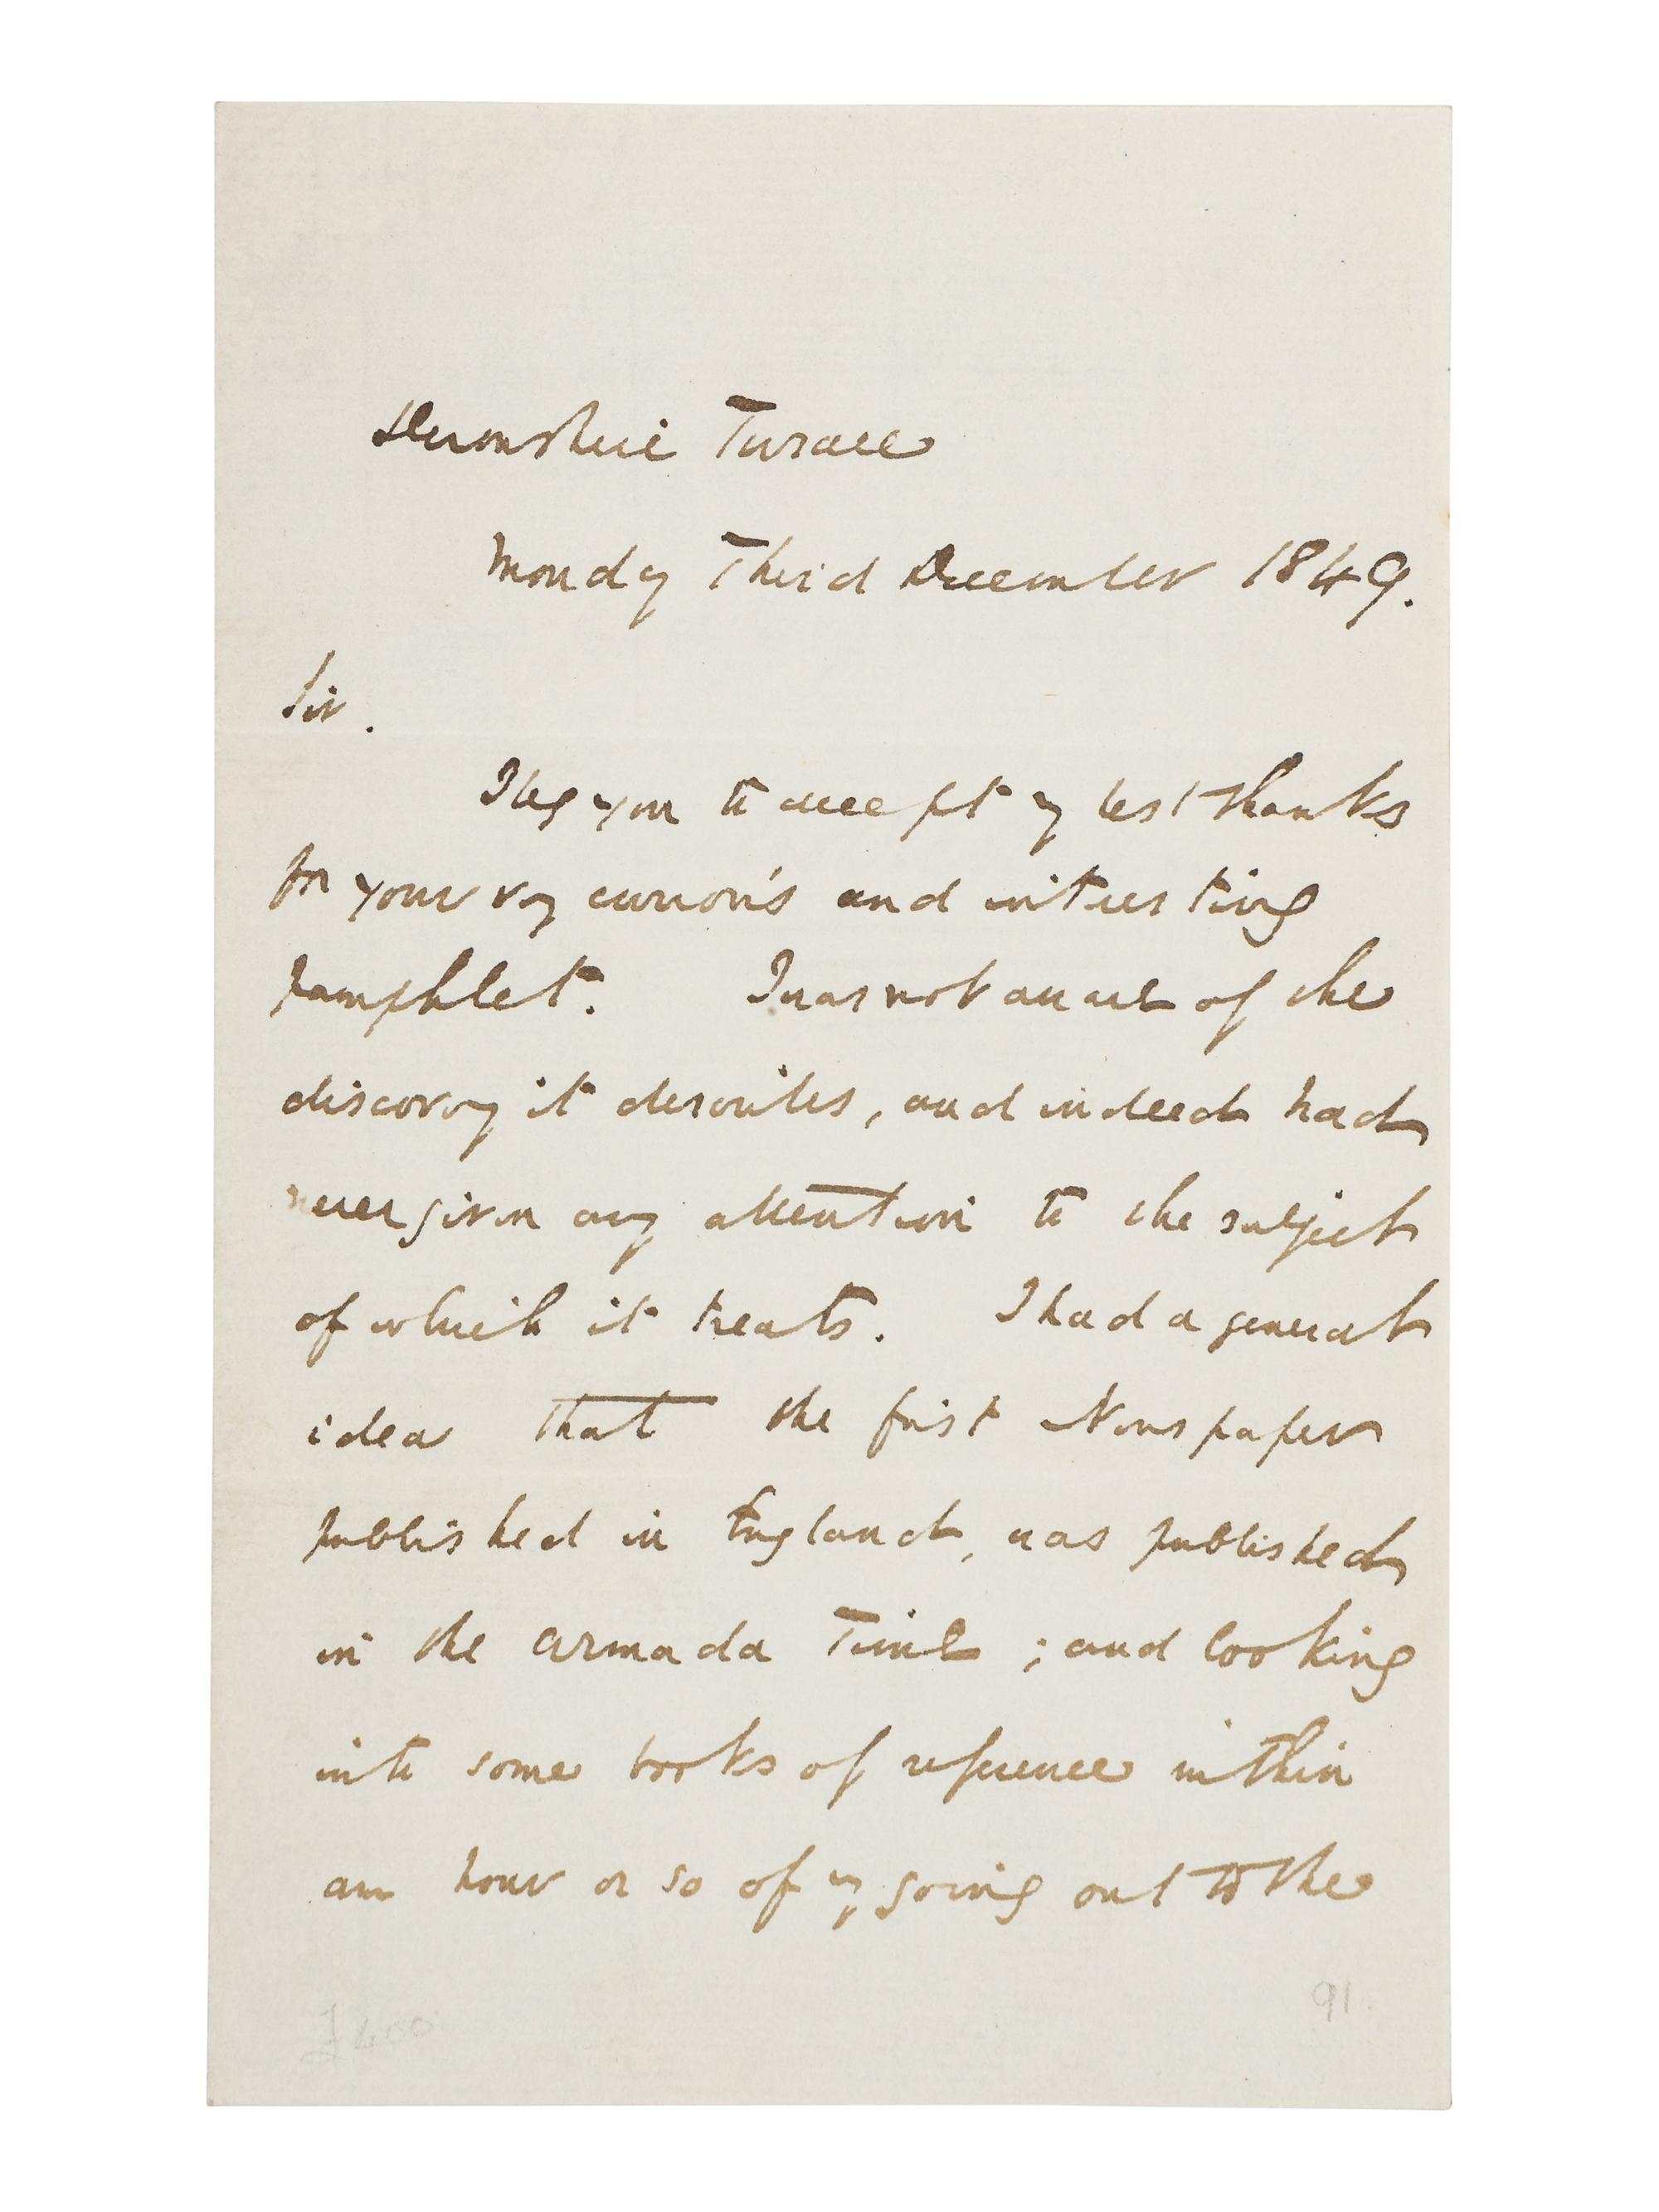 Devonshire Terrace
Monday Third December 1849.
Sir.
I beg you to accept my best thanks
for your very curious and interesting
pamphlet. I was not aware of the
discovery it describes, and indeed had
never given any attention to the subject
of which it treats. I had a general
idea that the first Newspaper
published in England, was published
in the Armada Time ; and looking
into some books of reference within
an hour or so of my going out to the
91.
£400